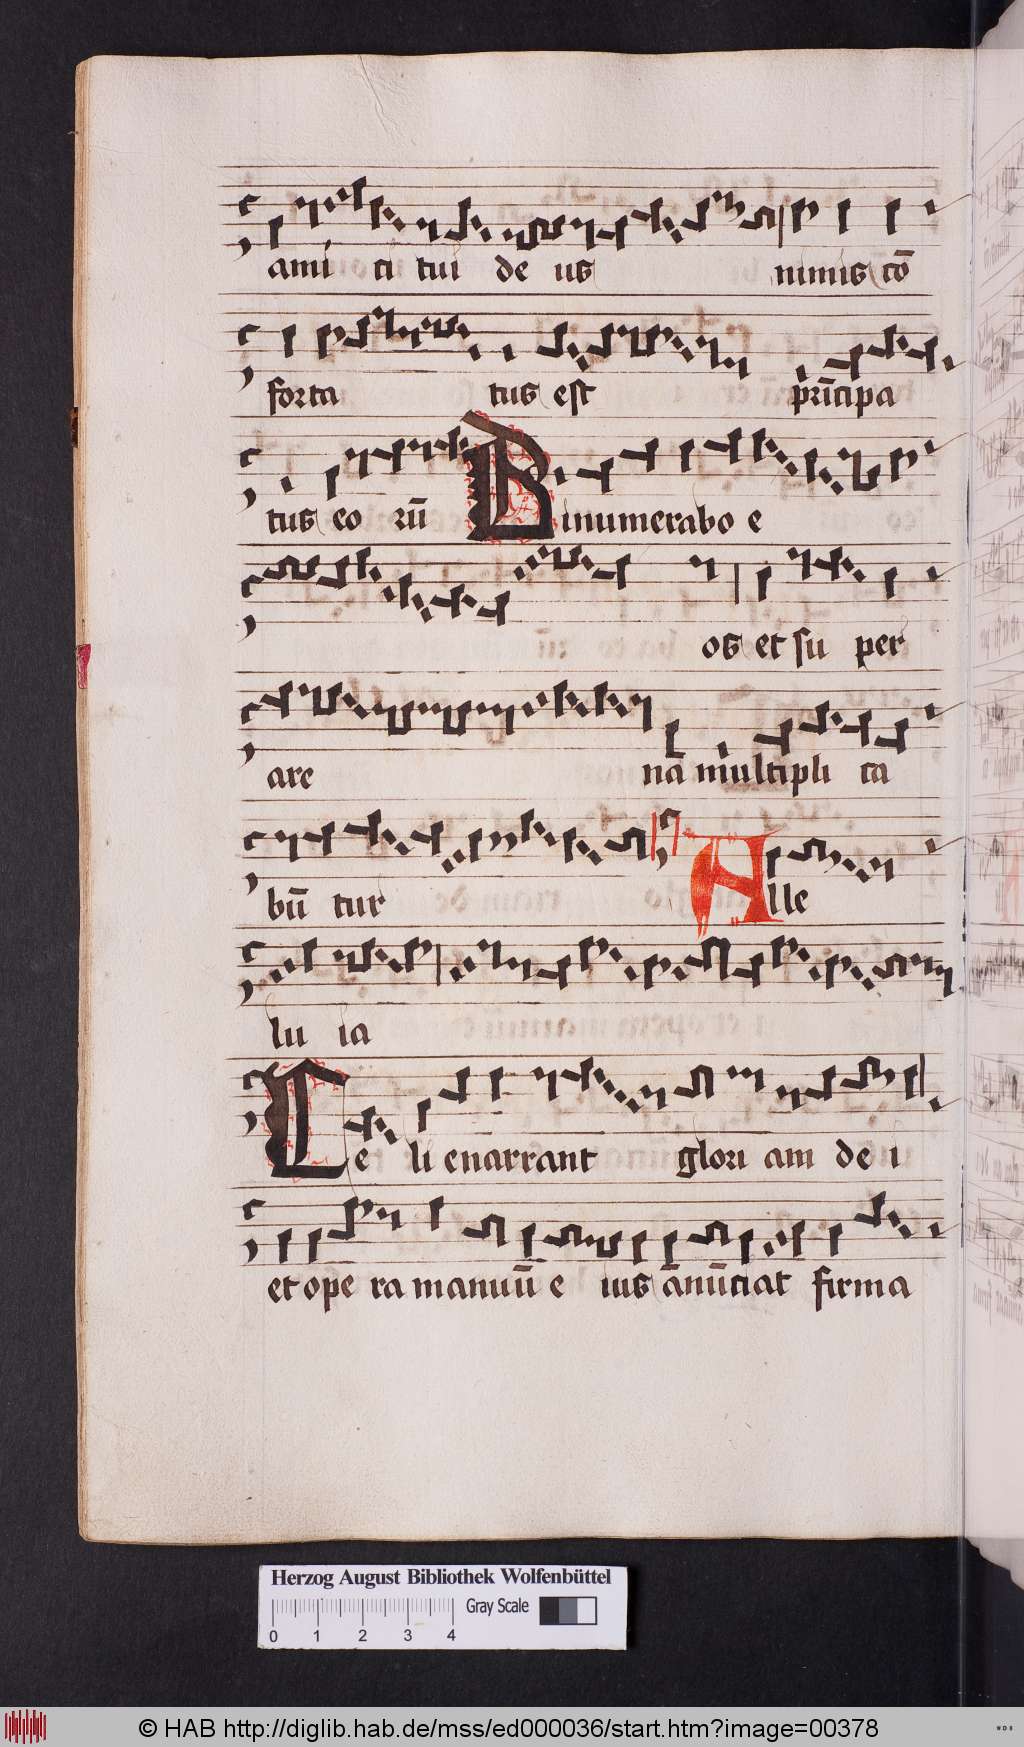 ami ci tui de us nimis cō
forta tus est prīcipa
tus eo rū Dinumerabo e
os et su per
are nā multipli ca
bū tur Alle
lu ia
Celi enarrant glori am de i
et ope ra manuū e ius ānūciat firma
Herzog August Bibliothek Wolfenbüttel
Gray Scale
0 1 2 3 4
© HAB http://diglib.hab.de/mss/ed000036/start.htm?image=00378